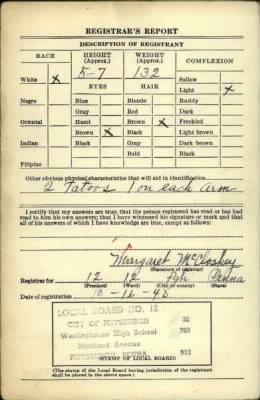 REGISTRAR'S REPORT
DESCRIPTION OF REGISTRANT
RACE HEIGHT (Approx.) WEIGHT (Approx.) COMPLEXION
5-7 132
White X EYES HAIR Sallow
Light X
Negro Blue Blonde Ruddy
Gray Red Dark
Oriental Hazel Brown X Freckled
Brown X Black Light brown
Indian Black Gray Dark brown
Bald Black
Filipino
Other obvious physical characteristics that will aid in identification
2 Tatoos 1 on each arm
I certify that my answers are true; that the person registered has read or has had read to him his own answers; that I have witnessed his signature or mark and that all of his answers of which I have knowledge are true, except as follows:
Margaret McCloskey
(Signature of registrar)
Registrar for 12 12 Pgh. Penna
(Precinct) (Ward) (City or county) (State)
Date of registration 10-16-40
LOCAL BOARD NO. 12
CITY OF PITTSBURGH 32
Westinghouse High School 703
Avenue
PITTSBURGH, PENNA. 912
(STAMP OF LOCAL BOARD)
(The stamp of the Local Board having jurisdiction of the registrant shall be placed in the above space.)